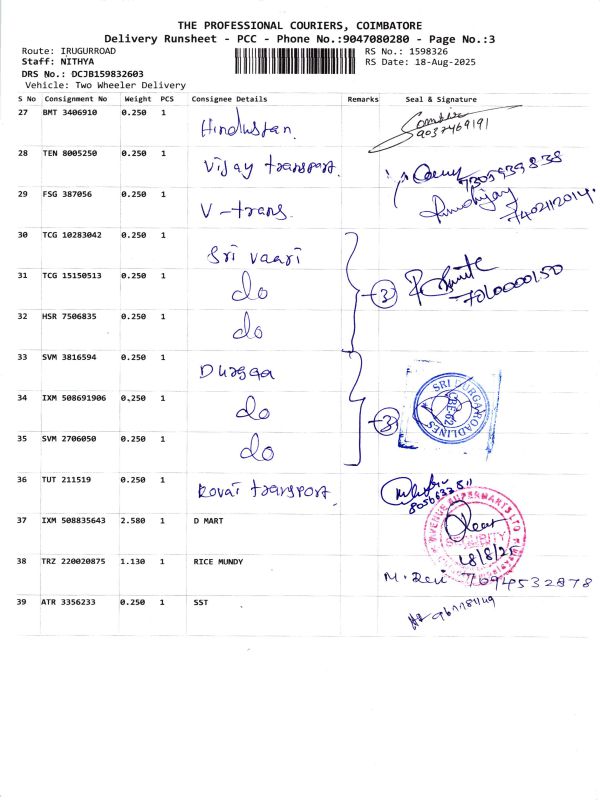 THE PROFESSIONAL COURIERS, COIMBATORE
Delivery Runsheet - PCC - Phone No.:9047080280 - Page No.:3
Route: IRUGURROAD RS No.: 1598326
Staff: NITHYA RS Date: 18-Aug-2025
DRS No.: DCJB159832603
Vehicle: Two Wheeler Delivery
S No Consignment No Weight PCS Consignee Details Remarks Seal & Signature
27 BMT 3406910 0.250 1 Hindustan. 9032469191
28 TEN 8005250 0.250 1 Vijay transport. 7305939838
29 FSG 387056 0.250 1 V-trans.
30 TCG 10283042 0.250 1 Sri vaari
31 TCG 15150513 0.250 1 do 3
32 HSR 7506835 0.250 1 do
33 SVM 3816594 0.250 1 Durgaa
34 IXM 508691906 0.250 1 do 3 SRI DURGA ROADLINES CBE-62
35 SVM 2706050 0.250 1 do
36 TUT 211519 0.250 1 Kovai transport.
37 IXM 508835643 2.580 1 D MART AVENUE SUPERMARTS LTD SECURITY 18/8/25
38 TRZ 220020875 1.130 1 RICE MUNDY M. Revi 7694532878
39 ATR 3356233 0.250 1 SST